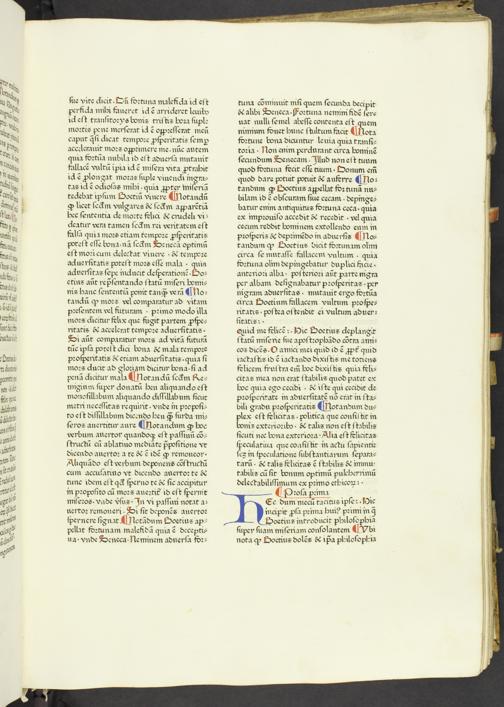 sue vite dicit. Dū fortuna malefida id est
perfida mihi faueret id ē arrideret leuib;
id est transitorijs bonis tristis hora supple
mortis pene merserat id ē oppresserat meū
caput q̄si dicat tempore prosperitatis semp
accelerauit mors opprimere me. nūc autem
quia fortūa nubila id est aduersa mutauit
fallacē vultū ipia id ē misera vita protrahit
id ē plongat moras supple viuendi ingra-
tas id ē odiosas mihi. quia propter miseriā
tedebat ipsum Boetiū viuere ¶ Notandū
q̄ licet scdm vulgares & scdm apparētiā
hec sententia de morte felici & crudeli vi
deatur vera tamen scdm rei veritatem est
falsa quia mors etiam tempore prosperitatis
potest esse bona. nā scdm Seneca optimū
est mori cum delectat viuere. & tempore
aduersitatis potest mors esse mala. quia
aduersitas sepe inducit desperationē. Bo-
etius aūt representando statū miseri homi-
nis hanc sententiā ponit tanq̄ verā ¶ No
tandū q̄ mors vel comparatur ad vitam
presentem vel futuram. primo modo illa
mors dicitur felix que fugit partem prospe-
ritatis & accelerat tempore aduersitatis.
Si aūt comparatur mors ad vitā futurā
tūc ipsa potest dici bona & mala tempore
prosperitatis & etiam aduersitatis. quia si
mors ducit ad gloriam dicitur bona. si ad
penā dicitur mala ¶ Notandū scdm Re-
migium super donatū hen aliquando est
monosillabum aliquando dissillabum sicut
metri necessitas requirit. vnde in proposi-
to est dissillabum dicendo heu q̄ surda mi
seros auertitur aure ¶ Notandum q̄ hoc
verbum auertor quandoq̄ est passiuū cō-
structū cū ablatiuo mediāte prepositione vt
dicendo auertor a te & ē id q̄ remoueor.
Aliquādo est verbum deponens cōstructū
cum accusatiuo vt dicendo auertor te &
tunc idem est qd sperno te & sic accipitur
in proposito cū mors auertit id est spernit
miseros. vnde versus. In vi passiui notat a-
uertor remoueri. Si sit deponēs auertor
spernere signat ¶ Notādum Boetius ap-
pellat fortunam malefidā quia ē decepti-
ua. vnde Seneca. Neminem aduersa for-
tuna cōminuit nisi quem secunda decipit
& alibi Seneca. Fortuna nemini fidē ser
uat nulli semel abesse contenta est quem
nimium fouet hunc stultum facit ¶ Nota
fortune bona dicuntur leuia quia transi-
toria. Non enim perdurant circa hominē
secundum Senecam. Illud non est tuum
quod fortuna fecit esse tuum. Donum em̄
quod dare potuit potuit & auferre ¶ No
tandum q̄ Boetius appellat fortunā nu
bilam id ē obscuram siue cecam. depinge-
batur enim antiquitus fortuna ceca. quia
ex improuiso accedit & recedit. vel quia
cecum reddit hominem extollendo eum in
prosperis & deprimēdo in aduersis ¶ No
tandum q̄ Boetius dicit fortunam olim
circa se mutasse fallacem vultum. quia
fortuna olim depingebatur duplici facie.
anteriori alba. posteriori aūt parte nigra
per albam designabatur prosperitas. per
nigram aduersitas. mutauit ergo fortūa
circa Boetium fallacem vultum prospe-
ritatis. postea ostendit ei vultum aduer-
sitatis.
quid me felice: Hic Boetius deplangit
statū miserie sue apostrophādo cōtra ami-
cos dicēs. O amici mei quid id ē propter quid
iactastis id ē iactando dixistis me totiens
felicem frustra em̄ hoc dixistis quia feli-
citas mea non erat stabilis quod patet ex
hoc quia ego cecidi. & iste qui cecidit de
prosperitate in aduersitatē nō erat in sta-
bili gradu prosperitatis ¶ Notandum du-
plex est felicitas. politica que consistit in
bonis exterioribus. & talis non est stabilis
sicuti nec bona exteriora. Alia est felicitas
speculatiua que consistit in actu sapientie
seu in speculatione substantiarum separa-
tarū. & talis felicitas ē stabilis & immu-
tabilis cū sit bonum optimū pulcherrimū
delectabilissimum ex primo ethicorum.
¶ Prosa prima
Hec dum mecū tacitus ipse. Hic
incipit prosa prima huius primi in q̄
Boetius introducit philosophiā
super suam miseriam consolantem ¶ Vbi
nota q̄ Boetius dolēs & ipsa philosophia